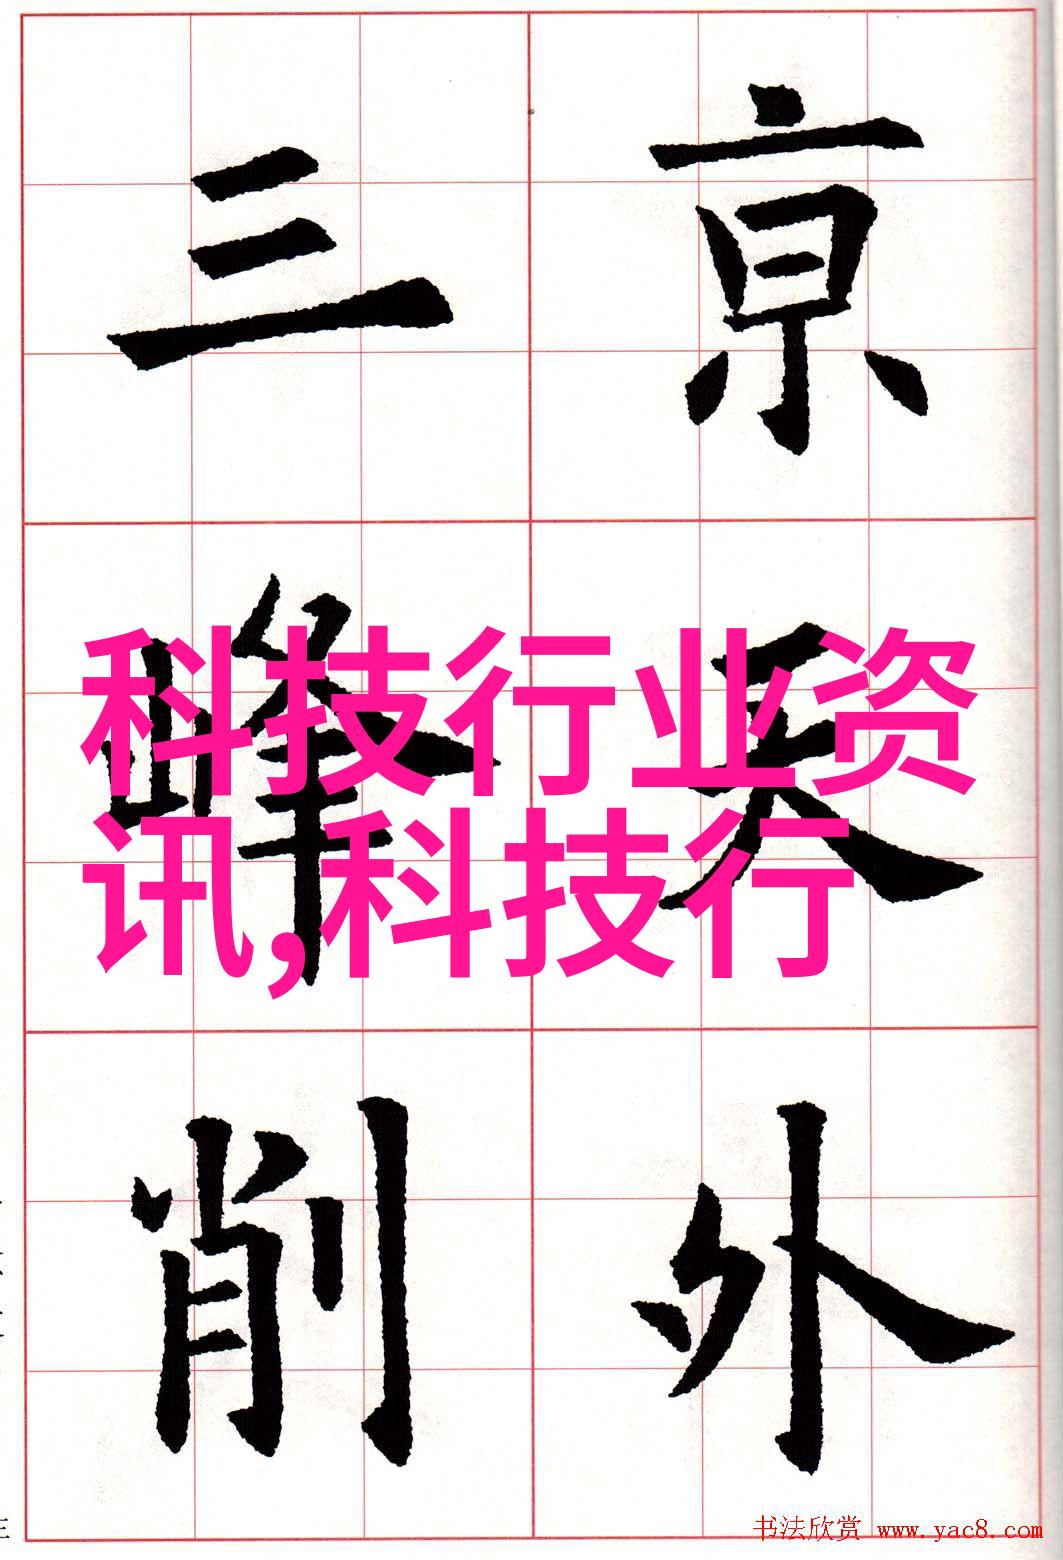 亰天外
三峰削
科技行业资
讯,科技行
书法欣赏 www.yac8.com